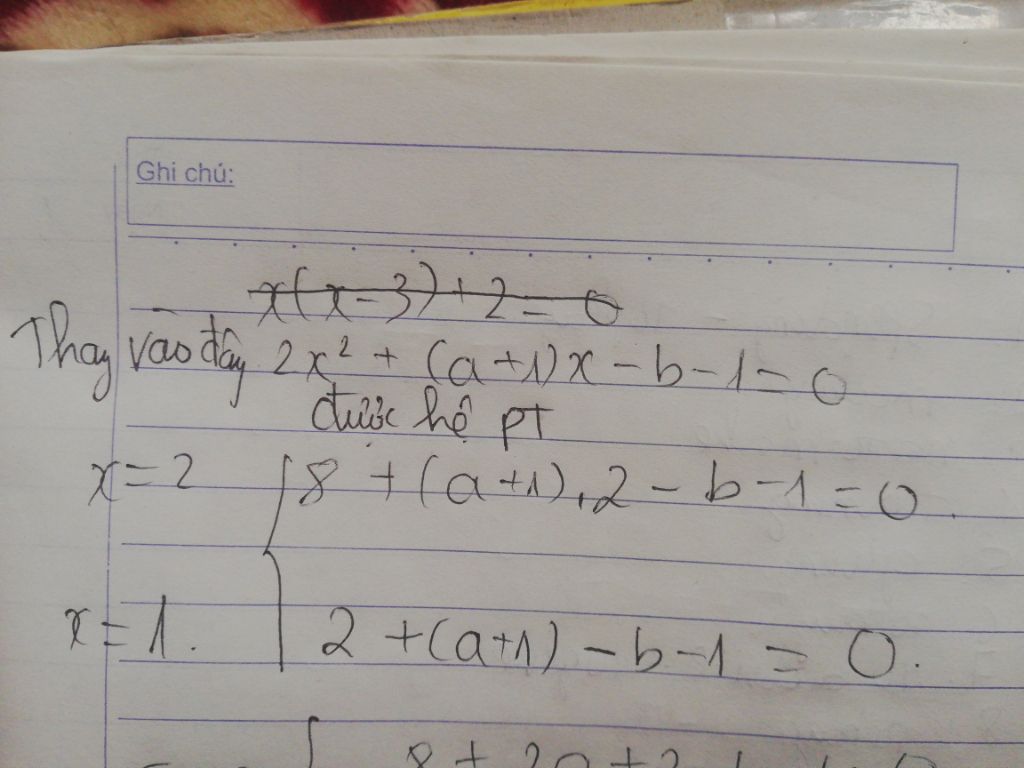 Ghi chú:
x(x-3)+2=0
Thay vào đây 2x² + (a+1)x - b - 1 = 0
được hệ PT
x=2 { 8 + (a+1).2 - b - 1 = 0.
x=1. 2 + (a+1) - b - 1 = 0.
8 + 2a + 2